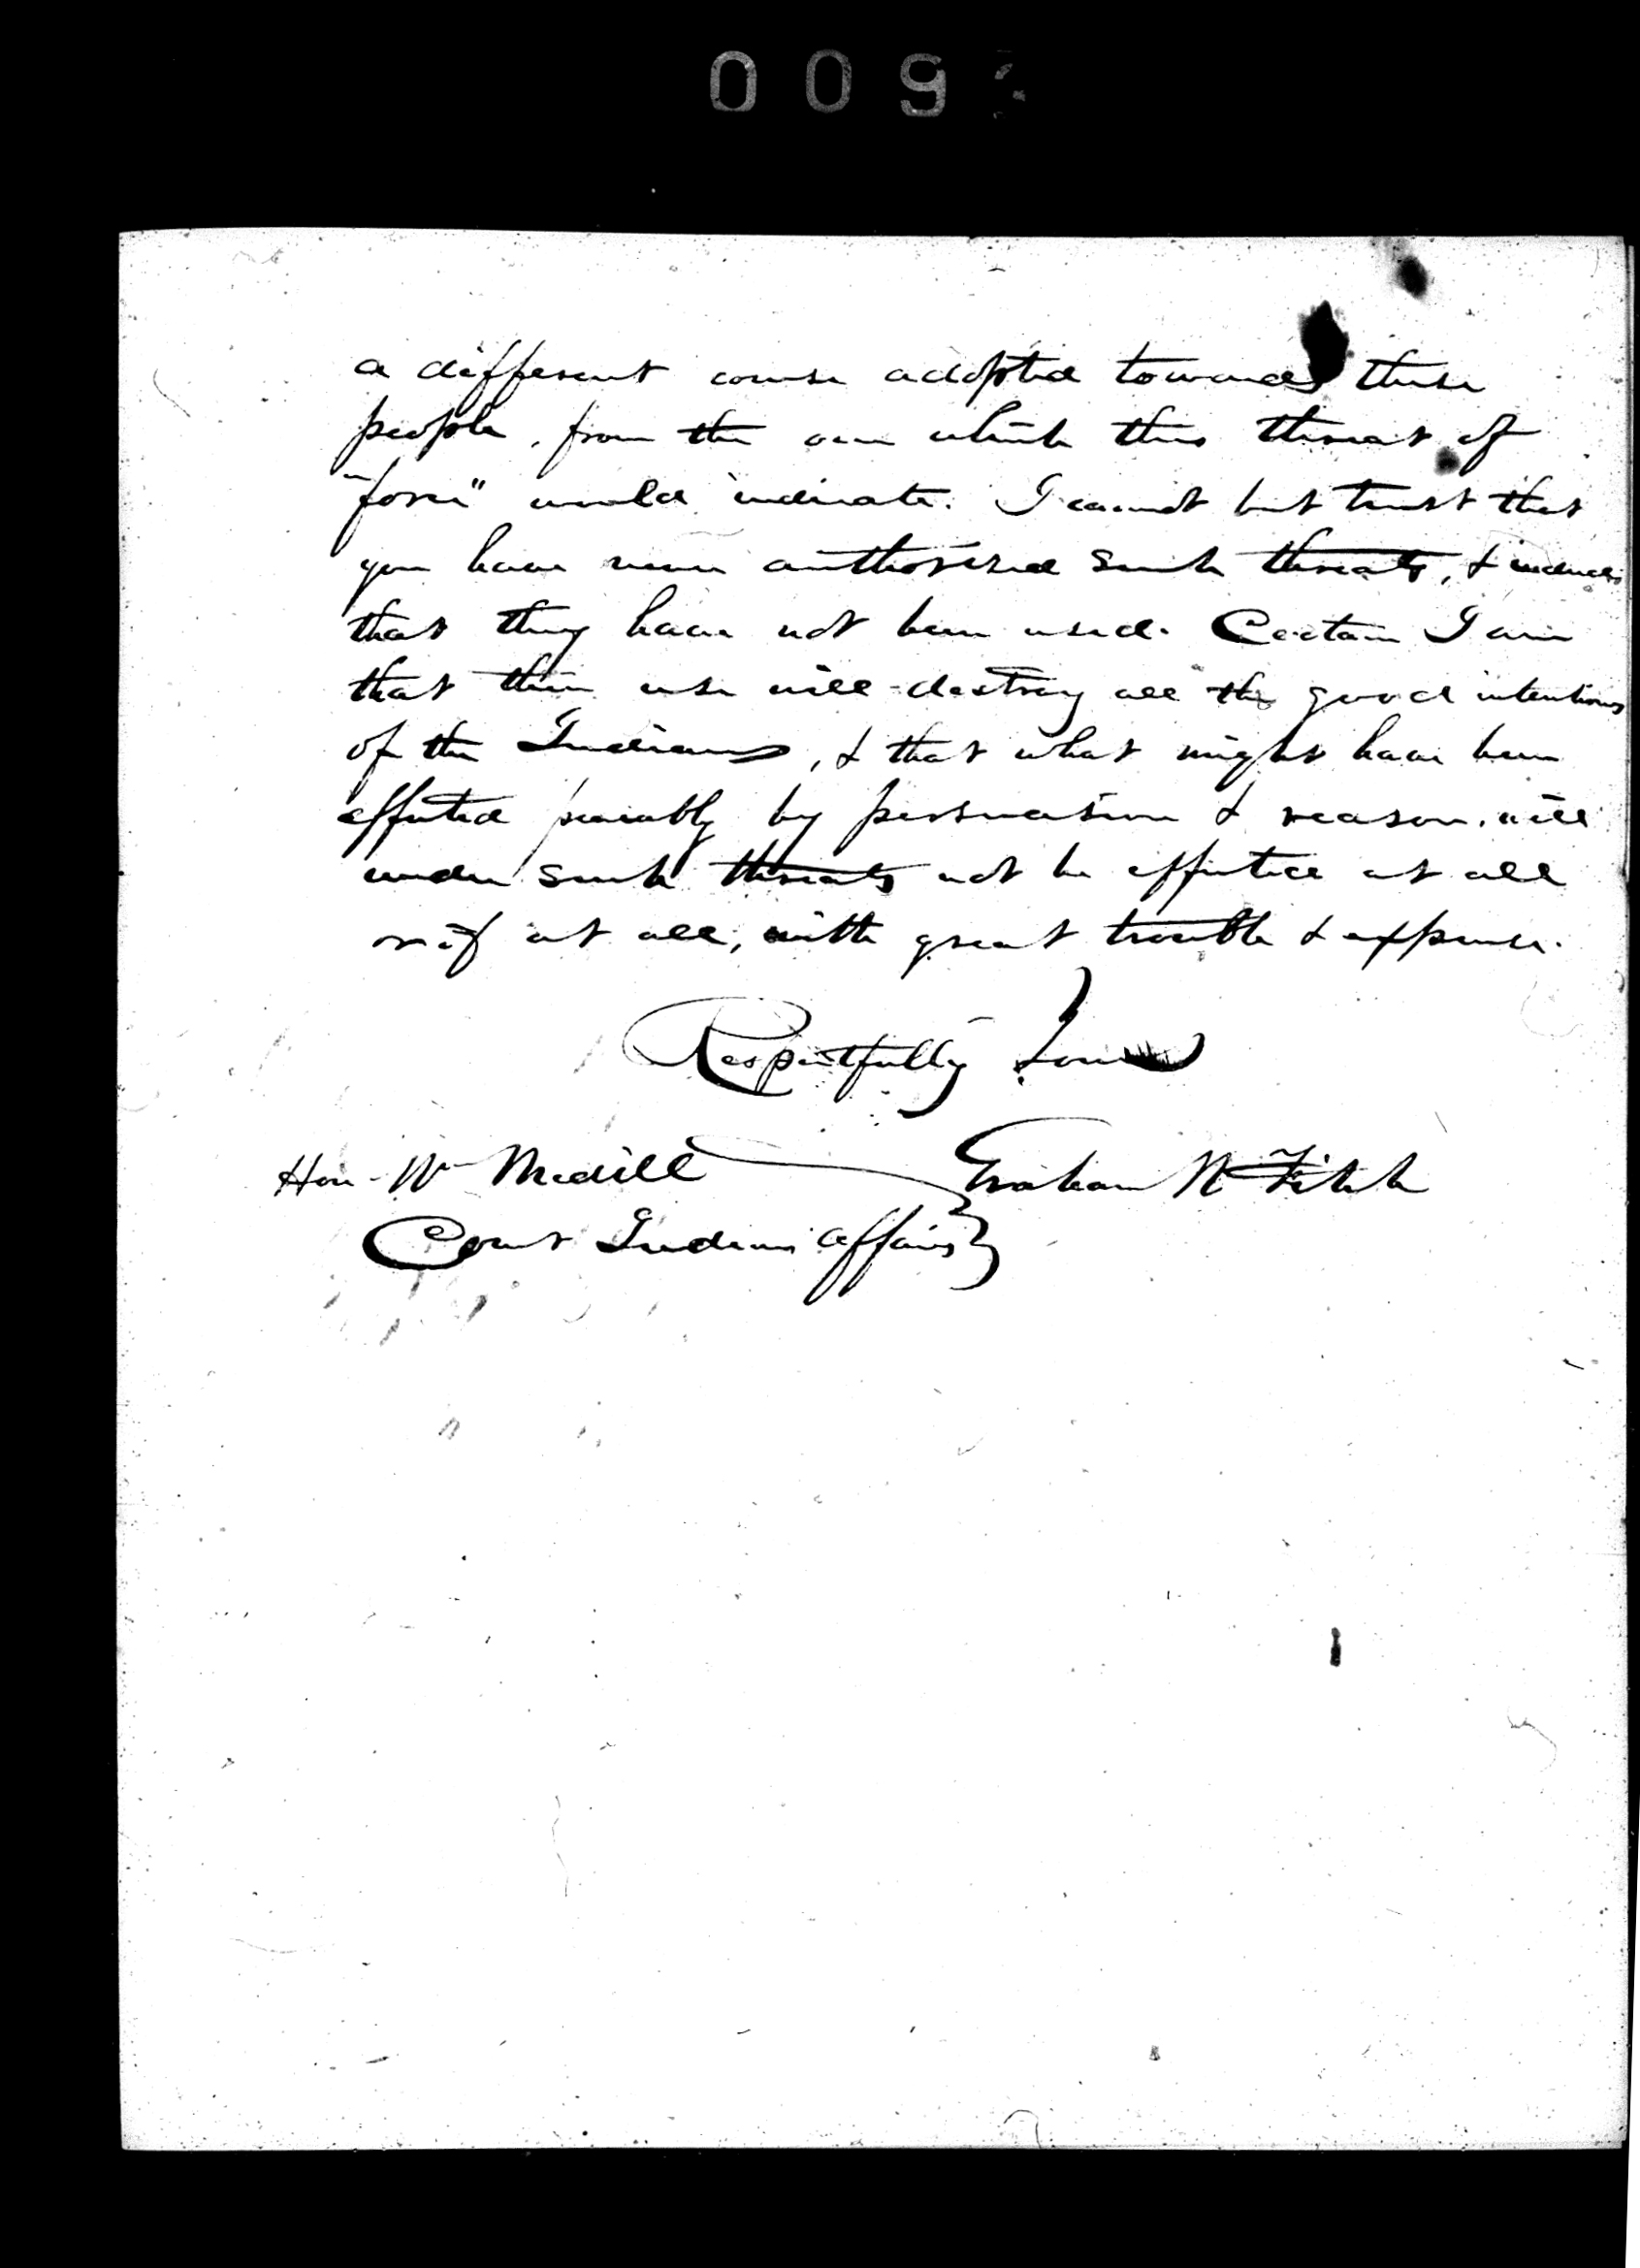 009
a different course adopted towards these
people, from the one which this threat of
"force" would indicate. I cannot but trust that
you have never authorised such threats, &
that they have not been used. Certain I am
that their use will destroy all the good intentions
of the Indians, & that what might have been
effected peaceably by persuasion & reason, will
under such threats not be effected at all
or if at all, with great trouble & expense.
Respectfully Yours
Hon. Wm Medill Graham N Fitch
Comr Indian Affairs